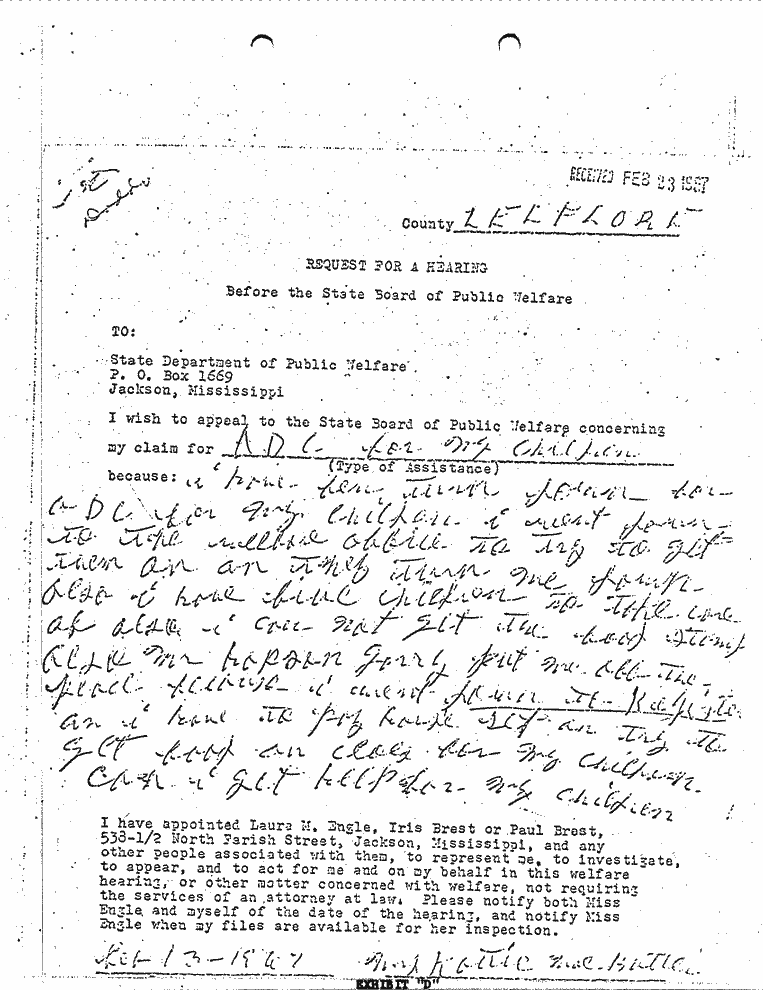 1st
RECEIVED FEB 23 1967
County LELFLORE
REQUEST FOR A HEARING
Before the State Board of Public Welfare
TO:
State Department of Public Welfare
P. O. Box 1669
Jackson, Mississippi
I wish to appeal to the State Board of Public Welfare concerning
my claim for A D C for my children
(Type of Assistance)
because: i have ben turn down for
a D C for my children i went down
to the wellfare office to try to get
them on an they turn me down
also i have five children to take care
of also i can not get the food stamp
also mr put me off the
place because i went down to Register
an i have to pay house an try to
get food an cloes for my children.
can i get help for my children
I have appointed Laura M. Engle, Iris Brest or Paul Brest,
538-1/2 North Farish Street, Jackson, Mississippi, and any
other people associated with them, to represent me, to investigate,
to appear, and to act for me and on my behalf in this welfare
hearing, or other matter concerned with welfare, not requiring
the services of an attorney at law. Please notify both Miss
Engle and myself of the date of the hearing, and notify Miss
Engle when my files are available for her inspection.
Feb 13-1967 Mrs Kattie Mae
EXHIBIT "D"